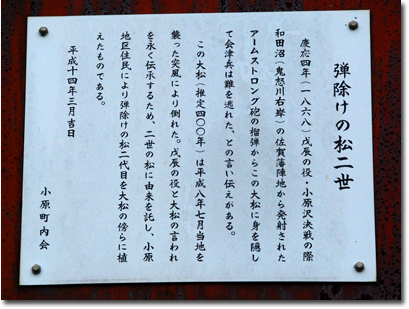 弾除けの松二世
慶応四年(一八六八)戊辰の役・小原沢決戦の際
和田沼(鬼怒川右岸)の佐賀藩陣地から発射された
アームストロング砲の榴弾からこの大松に身を隠し
て会津兵は難を逃れた、との言い伝えがある。
この大松(推定四〇〇年)は平成八年七月当地を
襲った突風により倒れた。戊辰の役と大松の言われ
を永く伝承するため、二世の松に由来を託し、小原
地区住民により弾除けの松二代目を大松の傍らに植
えたものである。
平成十四年三月吉日
小原町内会